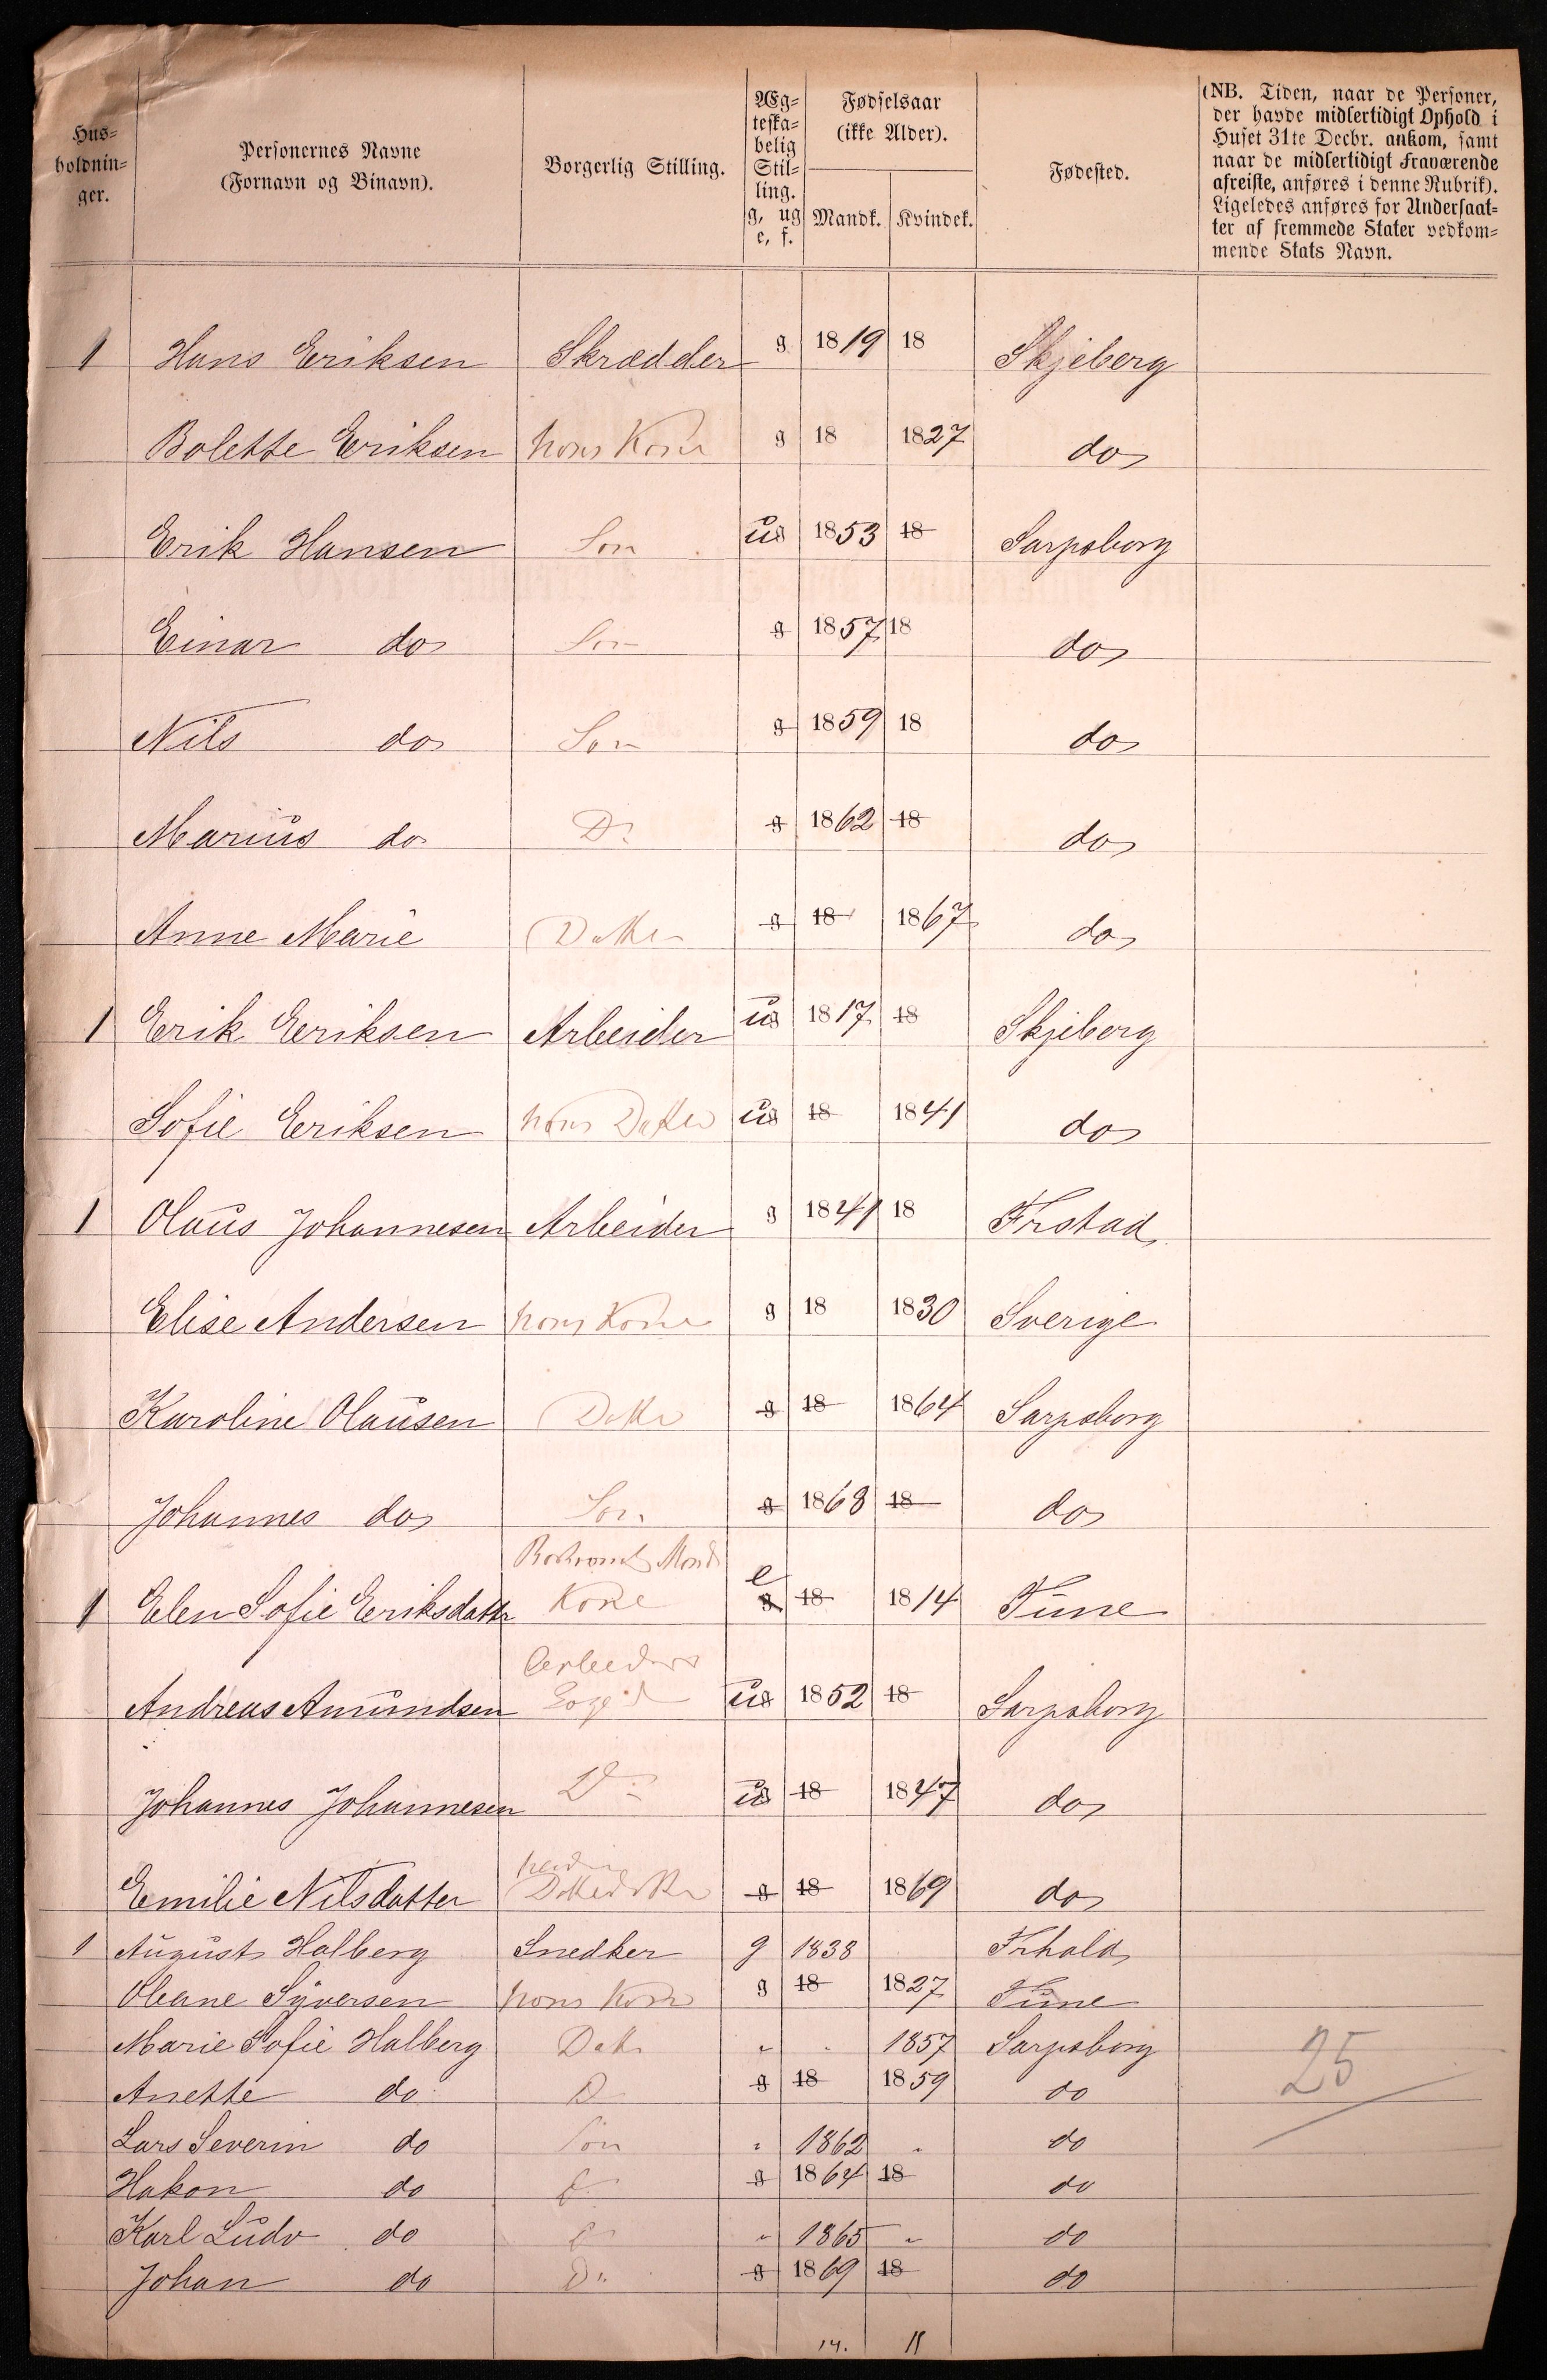 Hus-
holdnin-
ger.
Personernes Navne
(Fornavn og Binavn).
Borgerlig Stilling.
Æg-
teska-
belig
Stil-
ling.
g, ug
e, f.
Fødselsaar
(ikke Alder).
Mandk. Kvindek.
Fødested.
(NB. Tiden, naar de Personer,
der havde midlertidigt Ophold i
Huset 31te Decbr. ankom, samt
naar de midlertidigt Fraværende
afreiste, anføres i denne Rubrik).
Ligeledes anføres for Undersaat-
ter af fremmede Stater vedkom-
mende Stats Navn.
1 Hans Eriksen Skrædder g 1819 18 Skjeberg
Bolette Eriksen hans Kone g 18 1827 do
Erik Hansen Søn ug 1853 18 Sarpsborg
Einar do Søn g 1857 18 do
Nils do Søn g 1859 18 do
Marius do Do g 1862 18 do
Anne Marie Datter g 18 1867 do
1 Erik Eriksen Arbeider ug 1817 18 Skjeberg
Sofie Eriksen hans Datter ug 18 1841 do
1 Olaus Johannesen Arbeider g 1841 18 Frstad
Elise Andersen hans Kone g 18 1830 Sverige
Karoline Olausen Datter g 18 1864 Sarpsborg
Johannes do Søn g 1868 18 do
1 Elen Sofie Eriksdattr Kone e g 18 1814 Tune
Andreas Amundsen ug 1852 18 Sarpsborg
Johannes Johannesen Do ug 18 1847 do
Emilie Nilsdatter g 18 1869 do
1 August Halberg Snedker g 1838 Frhald
Oleane Syversen hans Kone g 18 1827 Tune
Marie Sofie Halberg Dattr " " 1857 Sarpsborg
Anette do D g 18 1859 do
Lars Severin do Søn " 1862 " do
Hakon do D g 1864 18 do
Karl Ludv do D " 1865 " do
Johan do Do g 1869 18 do
25
14. 11